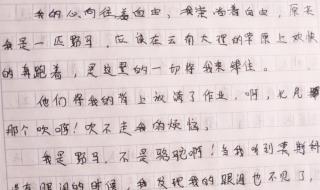 我的心向往着自由,我崇尚着自由,原本
我是一匹野马,应该在云南大理的草原上欢快
的奔跑着,是这里的一切将我束缚住。
他们将我的背上放满了作业,啊,
那个吹啊!吹不走我的烦恼,
我是野马,不是骆驼啊!当我听到奥斯卡
没有眼泪的时候,我发现我的眼泪也不见了,